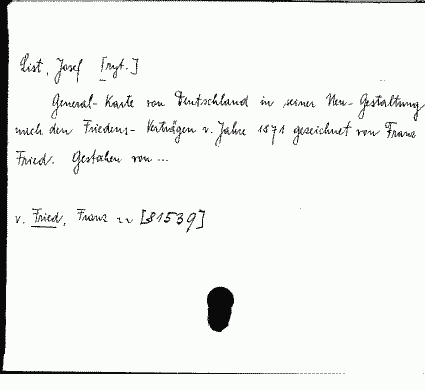 List, Josef [ryt.]
General-Karte von Deutschland in seiner Neu-Gestaltung
nach den Friedens-Verträgen v. Jahre 1871 gezeichnet von Franz
Fried. Gestochen von ...
v. Fried, Franz [81539]